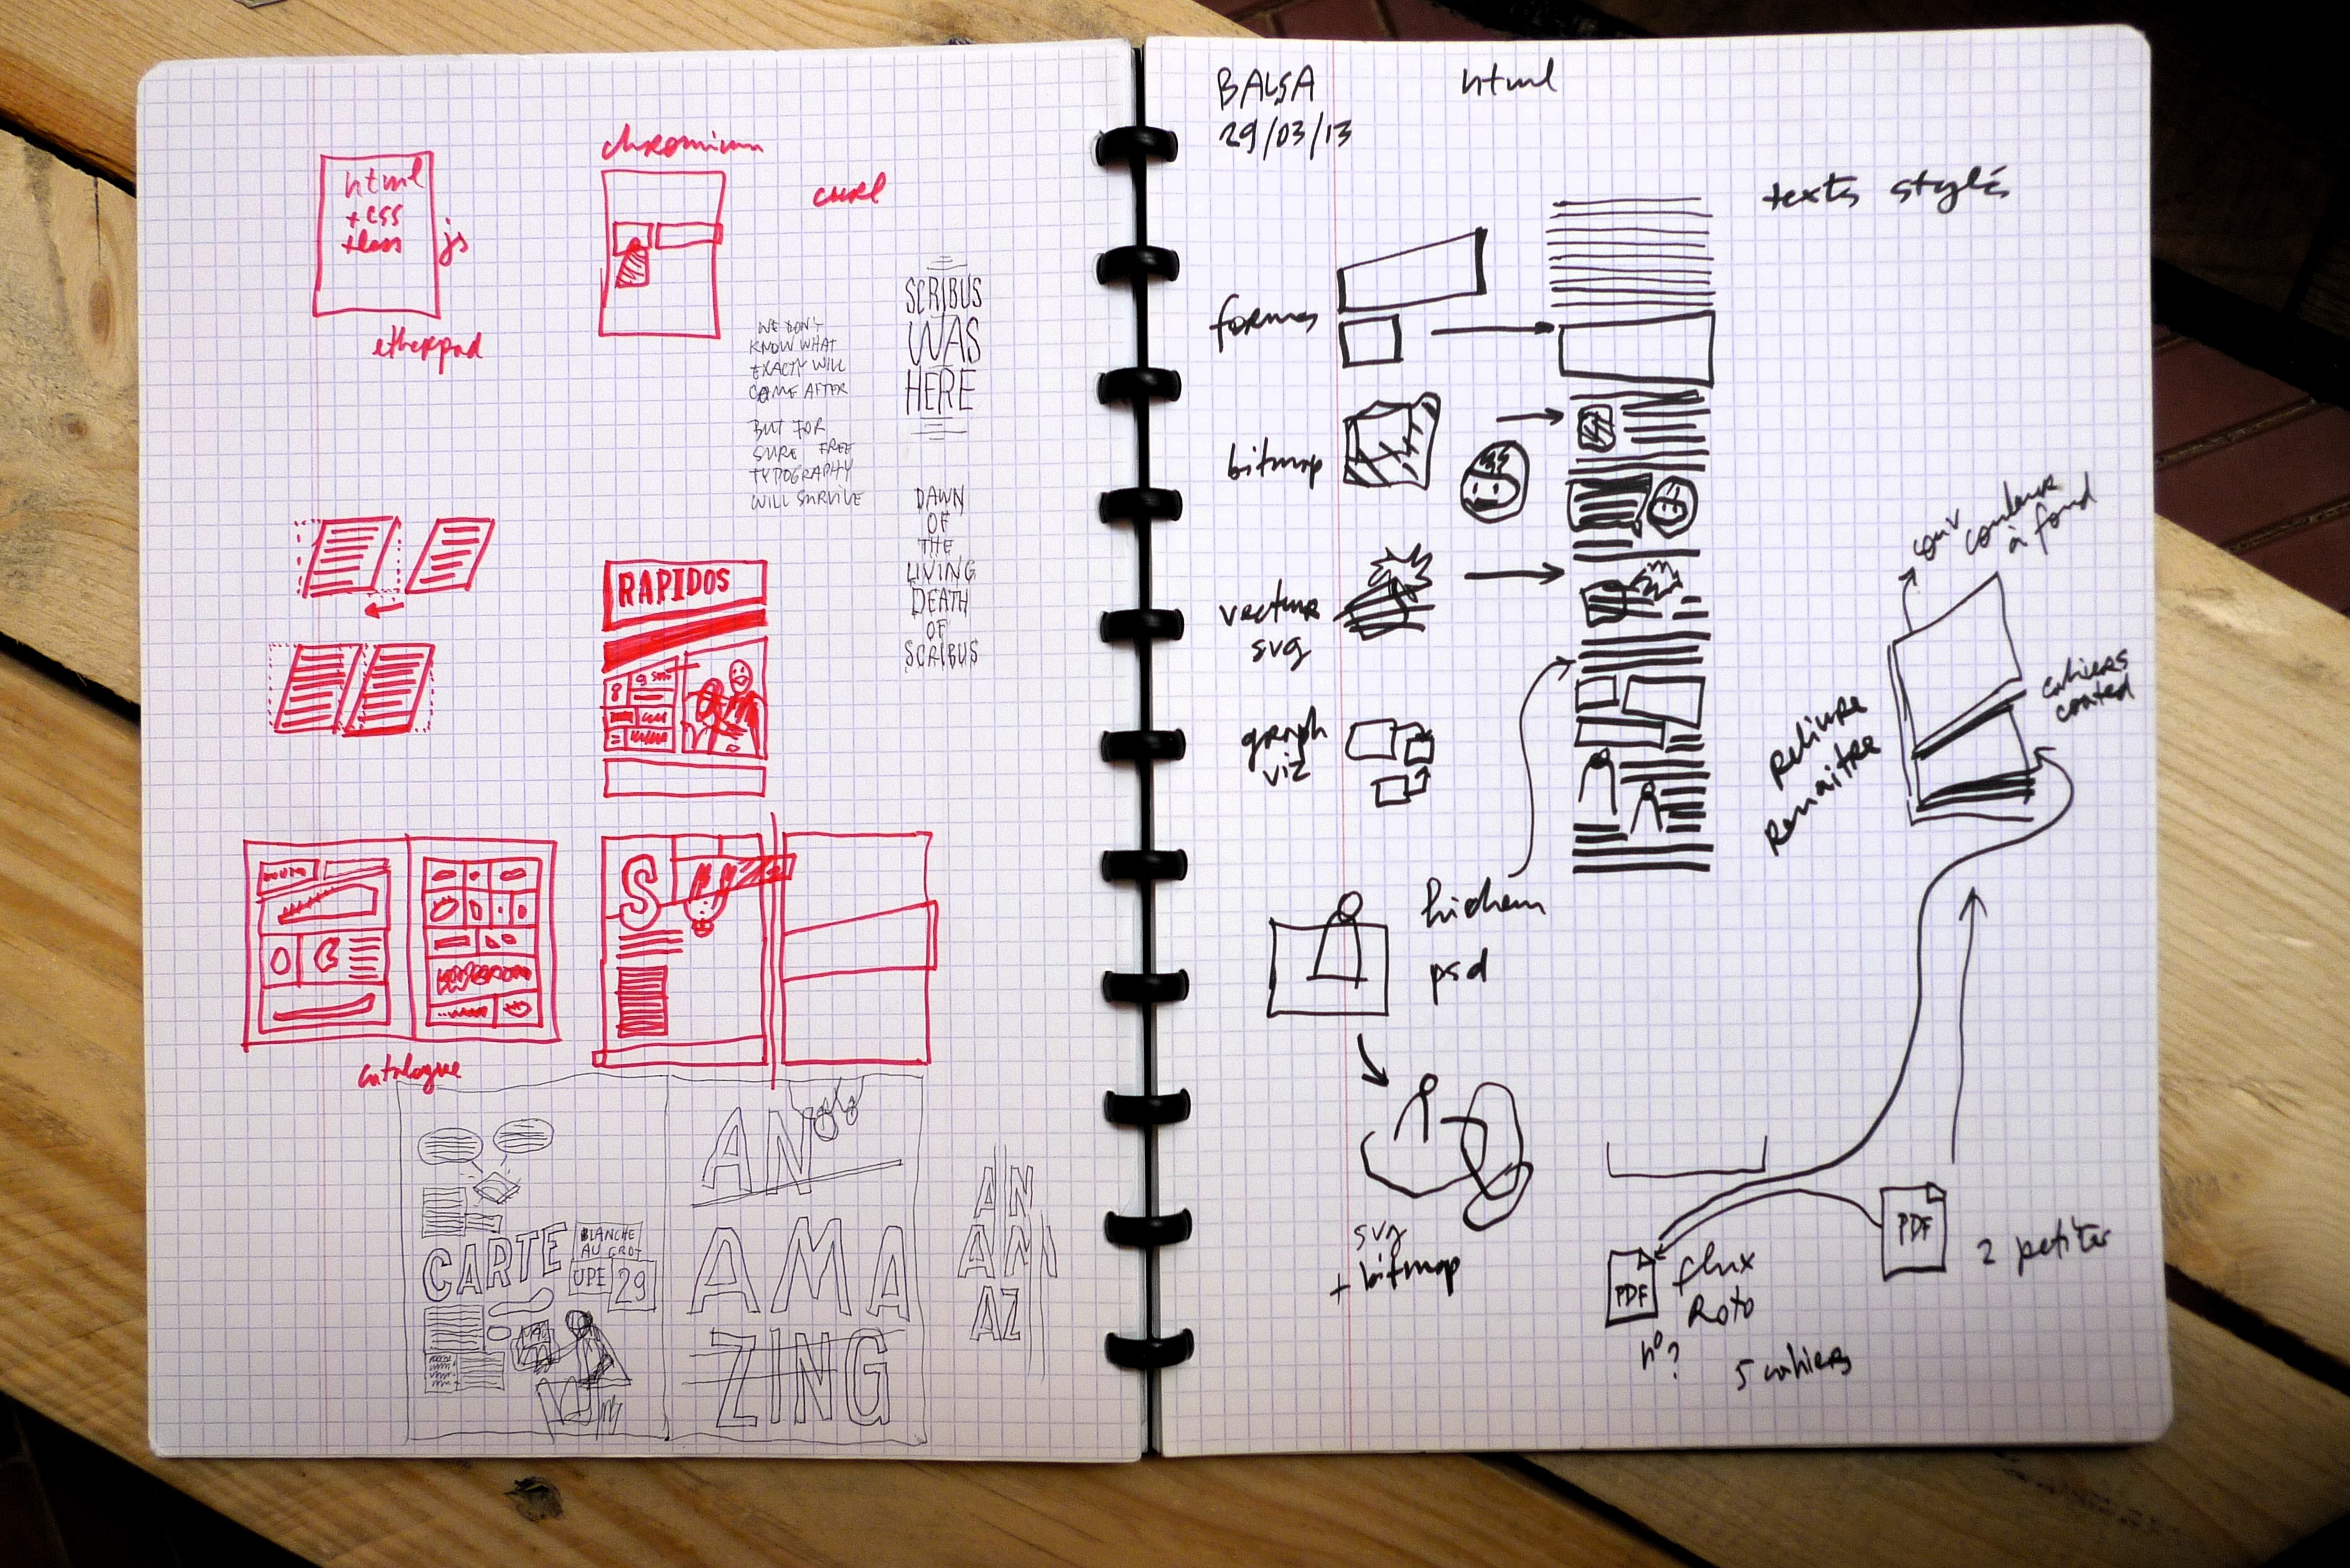 html
+ css
+ less
js
etherpad
chromium
curl
WE DON'T
KNOW WHAT
EXACTLY WILL
COME AFTER
BUT FOR
SURE FREE
TYPOGRAPHY
WILL SURVIVE
SCRIBUS
WAS
HERE
DAWN
OF
THE
LIVING
DEATH
OF
SCRIBUS
RAPIDOS
S
catalogue
CARTE
BLANCHE
AU GRO-
UPE
29
AN
AMA
ZING
AN
AM
AZ
BALSA
29/03/13
html
texts stylés
formes
bitmap
vecteur
svg
graph
viz
hichem
psd
svg
+ bitmap
couv couleur
à fond
cahiers
coated
Reliure
Remaitre
PDF
flux
Roto
n°?
5 cahiers
PDF
2 petites